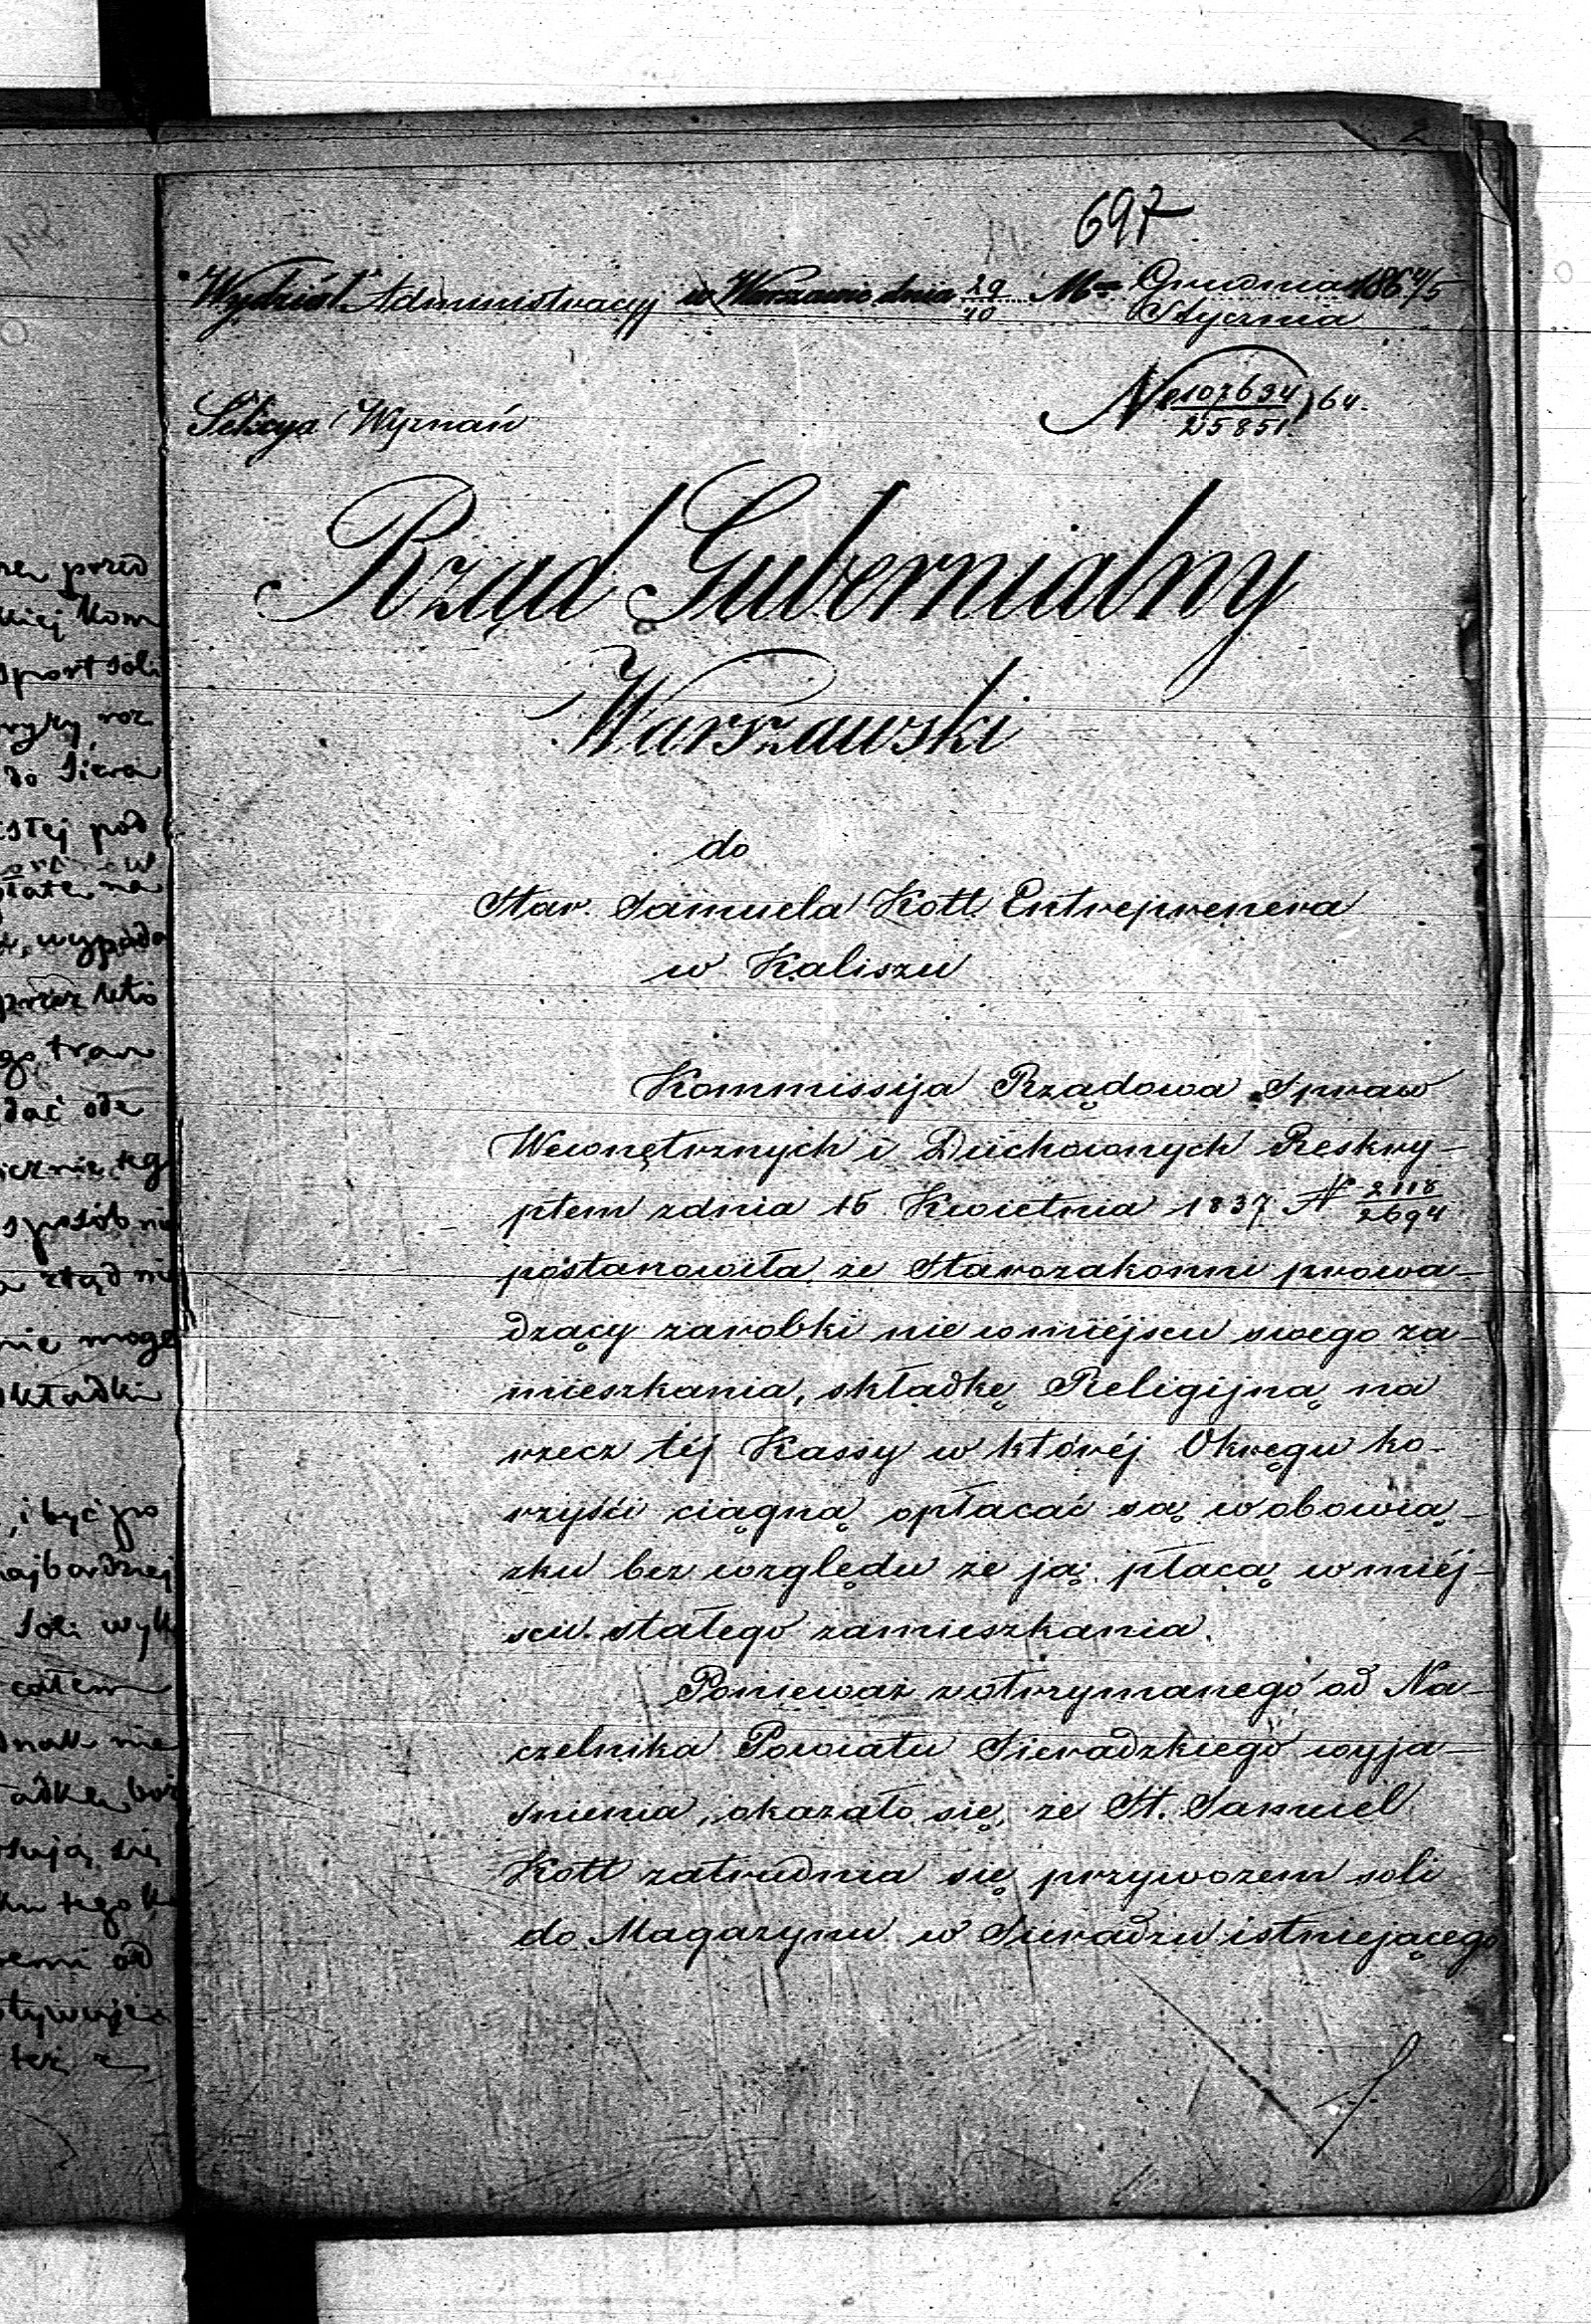 697
Wydział Administracyj w Warszawie dnia 29/10 Mca Grudnia/Stycznia 1864/5
Sekcya Wyznań
No 107634/25851 )64.
Rząd Gubernialny
Warszawski
do
Star. Samuela Kott Entreprenera
w Kaliszu
Kommissija Rządowa Spraw
Wewnętrznych i Duchownych Reskry-
ptem zdnia 15 Kwietnia 1837 N 2118/2694
postanowiła że Starozakonni prowa-
dzący zarobki nie w miejscu swego za-
mieszkania, składkę Religijną na
rzecz téj Kassy w któréj Okręgu ko-
rzyści ciągną opłacać są w obowią-
zku bez względu że ją płacą w miéj-
scu stałego zamieszkania.
Ponieważ z otrzymanego od Na-
czelnika Powiatu Sieradzkiego wyja-
śnienia, okazało się, że St. Samuel
Kott zatrudnia się przywozem soli
do Magazynu w Sieradzu istniejącego
przed
kiej Kom
sport soli
roz
do Siera
pod
wypada
przez
go tran
dać ode
sposób
ztąd
nie mogę
składki
i być po
najbardziej
soli
całem
się
tego
od
też z